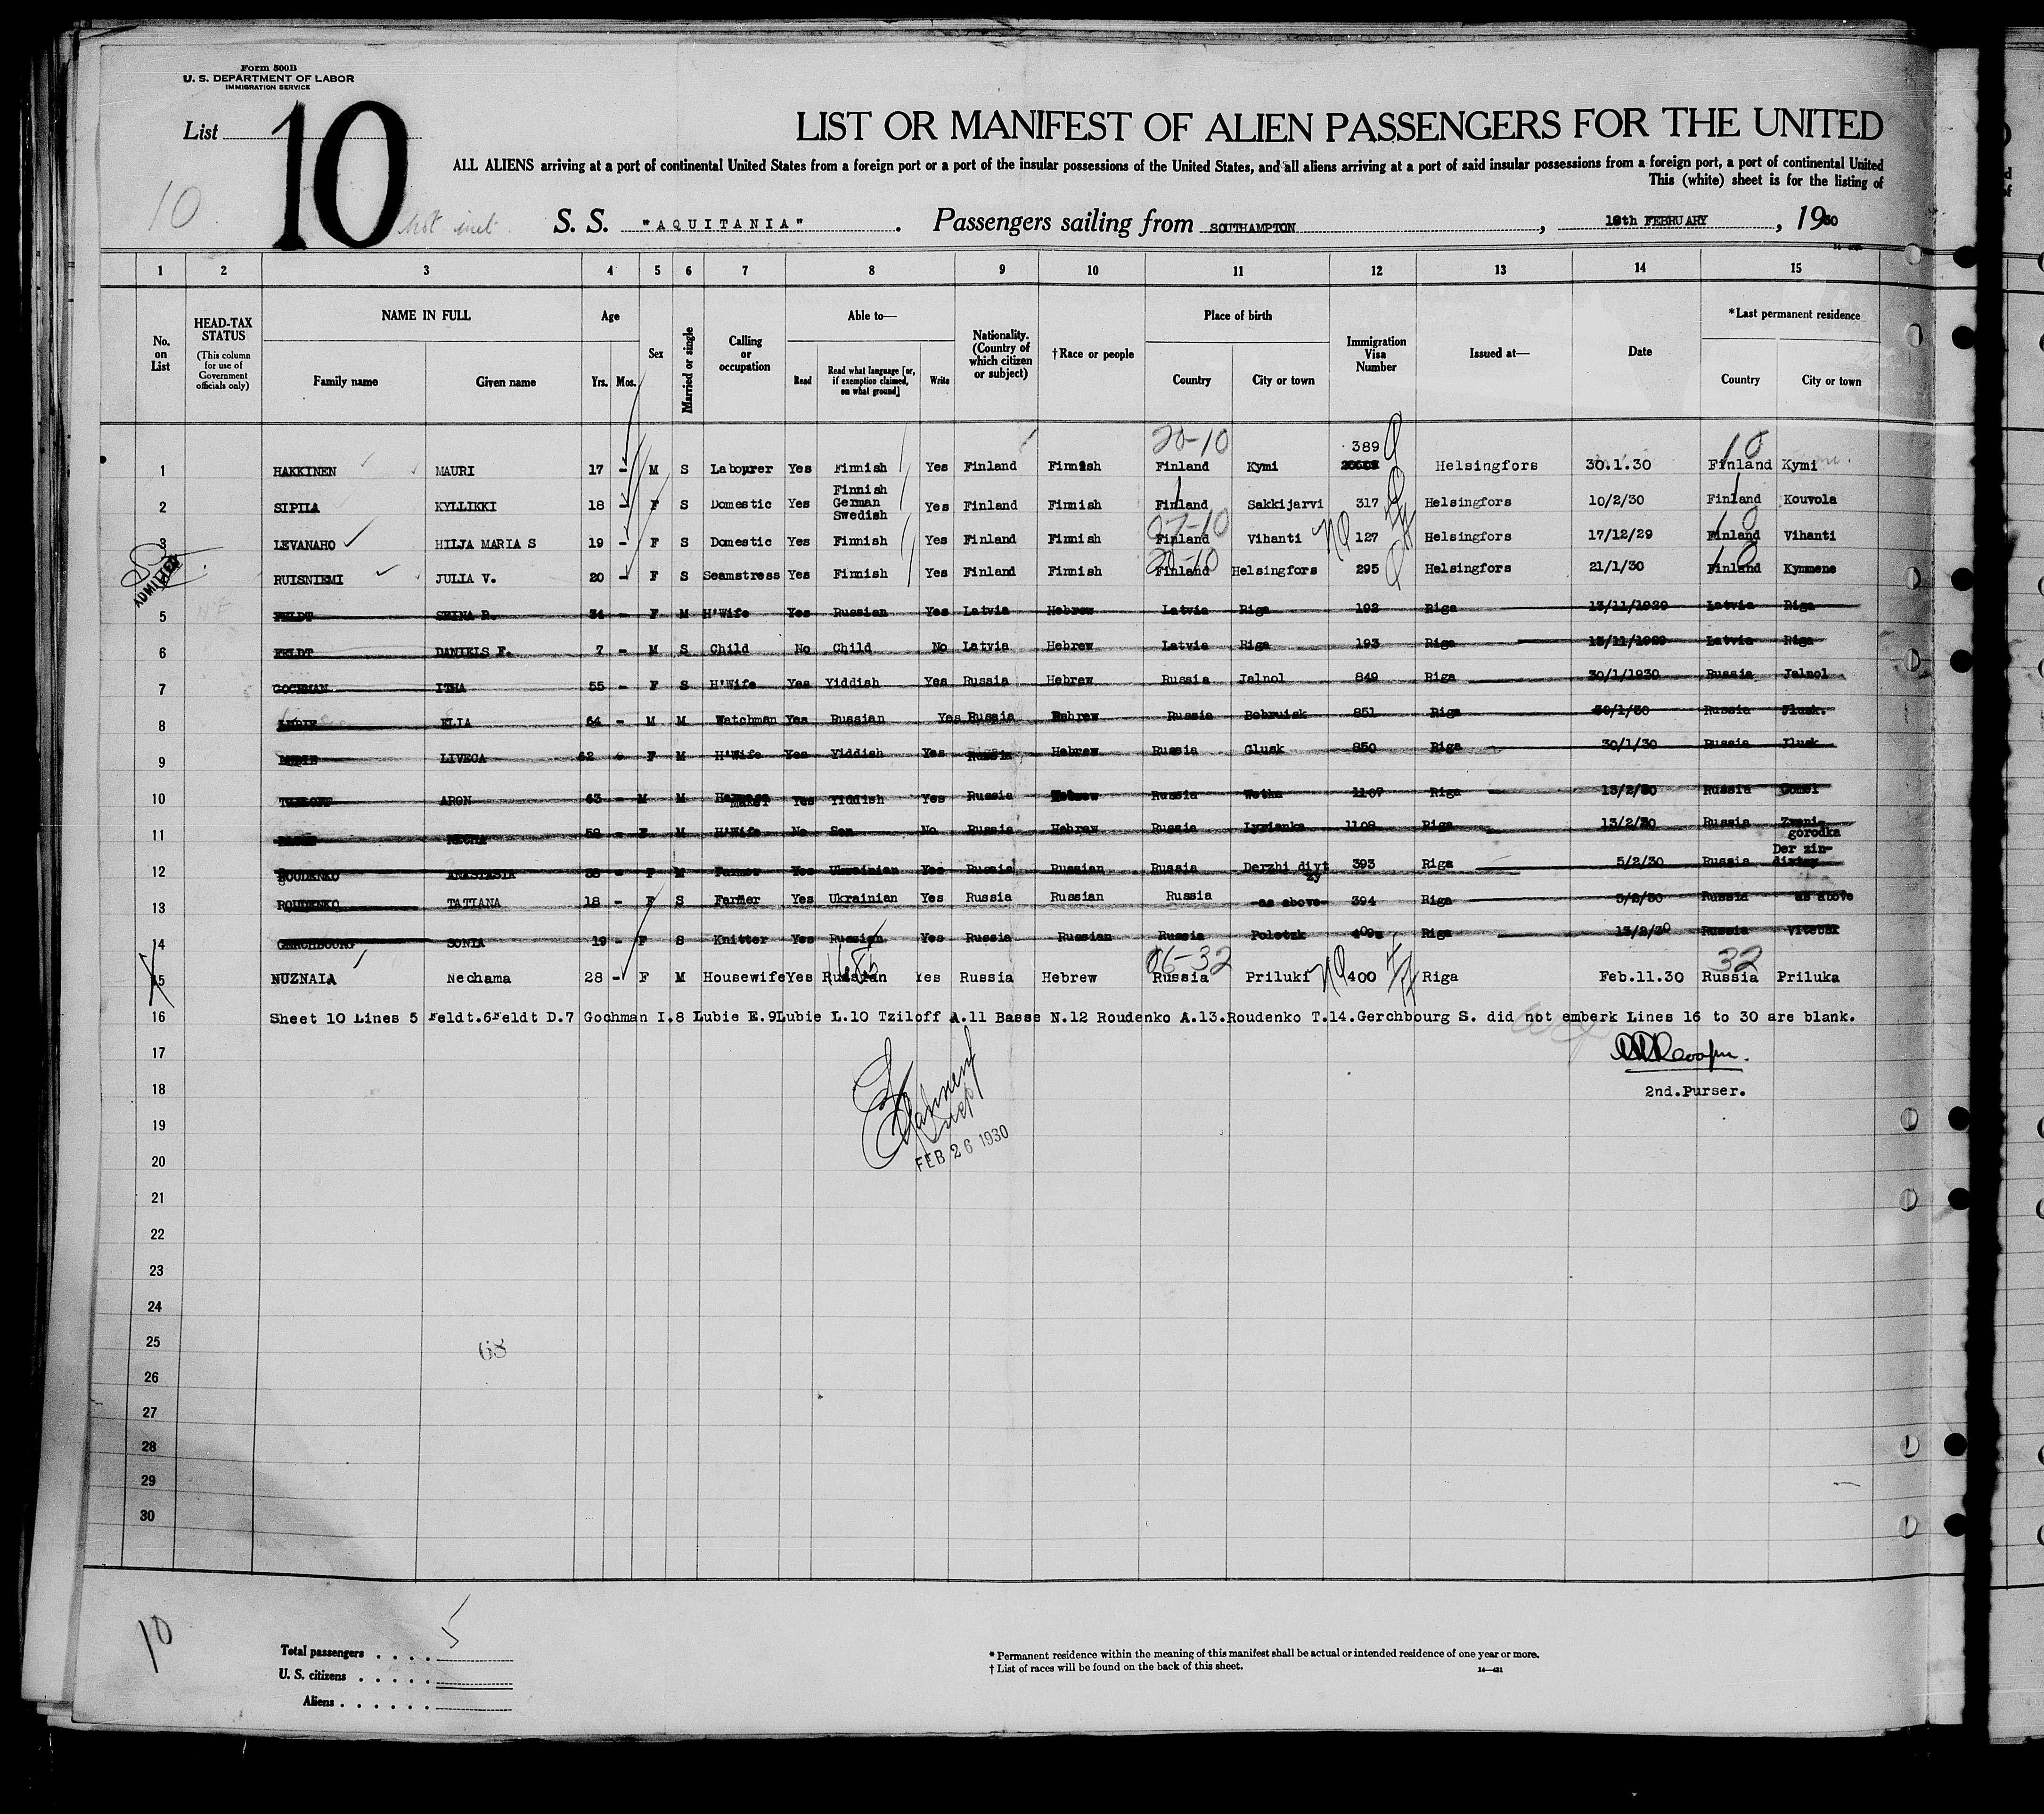 Form 500B
U. S. DEPARTMENT OF LABOR
IMMIGRATION SERVICE
List 10
10
LIST OR MANIFEST OF ALIEN PASSENGERS FOR THE UNITED
ALL ALIENS arriving at a port of continental United States from a foreign port or a port of the insular possessions of the United States, and all aliens arriving at a port of said insular possessions from a foreign port, a port of continental United
This (white) sheet is for the listing of
S. S. "AQUITANIA". Passengers sailing from SOUTHAMPTON, 19th FEBRUARY, 1930
1 2 3 4 5 6 7 8 9 10 11 12 13 14 15
No. on List
HEAD-TAX STATUS (This column for use of Government officials only)
NAME IN FULL
Family name Given name
Age
Yrs. Mos.
Sex
Married or single
Calling or occupation
Able to—
Read
Read what language [or, if exemption claimed, on what ground]
Write
Nationality. (Country of which citizen or subject)
†Race or people
Place of birth
Country City or town
Immigration Visa Number
Issued at—
Date
*Last permanent residence
Country City or town
20-10 389 10
1 HAKKINEN MAURI 17 - M S Labourer Yes Finnish Yes Finland Finnish Finland Kymi Helsingfors 30.1.30 Finland Kymi
2 SIPILA KYLLIKKI 18 - F S Domestic Yes Finnish German Swedish Yes Finland Finnish Finland Sakkijarvi 317 Helsingfors 10/2/30 Finland Kouvola
07-10 10
3 LEVANAHO HILJA MARIA S 19 - F S Domestic Yes Finnish Yes Finland Finnish Finland Vihanti NQ 127 Helsingfors 17/12/29 Finland Vihanti
20-10 10
RUISNIEMI JULIA V. 20 - F S Seamstress Yes Finnish Yes Finland Finnish Finland Helsingfors 295 Helsingfors 21/1/30 Finland Kymmene
ADMITTED
5 FELDT SEINA R. 34 - F M H'Wife Yes Russian Yes Latvia Hebrew Latvia Riga 192 Riga 13/11/1929 Latvia Riga
6 FELDT DANIELS F. 7 - M S Child No Child No Latvia Hebrew Latvia Riga 193 Riga 13/11/1929 Latvia Riga
7 GOCHMAN ITHA 55 - F S H'Wife Yes Yiddish Yes Russia Hebrew Russia Jalnol 849 Riga 30/1/1930 Russia Jalnol
8 ELIA 64 - M M Watchman Yes Russian Yes Russia Hebrew Russia Bobruisk 851 Riga 30/1/30 Russia Jlusk.
9 LIVEOA 62 F M H'Wife Yes Yiddish Yes Russia Hebrew Russia Glusk 850 Riga 30/1/30 Russia Jlusk
10 ARON 63 - M M Yes Yiddish Yes Russia Hebrew Russia Wetka 1107 Riga 13/2/30 Russia Gomel
11 NECHA 58 - F M H'Wife No Son No Russia Hebrew Russia Lyzianka 1108 Riga 13/2/30 Russia Zweni-gorodka
12 ROUDENKO ANASTASIA 38 - F M Farmer Yes Ukrainian Yes Russia Russian Russia Derzhi diyt zy 393 Riga 5/2/30 Russia Der zin-
13 ROUDENKO TATIANA 18 - F S Farmer Yes Ukrainian Yes Russia Russian Russia -as above- 394 Riga 5/2/30 Russia as above
14 GERCHBOURG SONIA 19 - F S Knitter Yes Russian Yes Russia Russian Russia Polotzk Riga 13/2/30 Russia Vitebsk
06-32 32
15 NUZNAIA Nechama 28 - F M Housewife Yes Russian Yes Russia Hebrew Russia Priluki NQ 400 Riga Feb.11.30 Russia Priluka
16 Sheet 10 Lines 5 Feldt.6Feldt D.7 Gochman I.8 Lubie E.9Lubie L.10 Tziloff A.11 Basse N.12 Roudenko A.13.Roudenko T.14.Gerchbourg S. did not emberk Lines 16 to 30 are blank.
17
18 2nd.Purser.
19
FEB 26 1930
20
21
22
23
24
25 68
26
27
28
29
30
10
Total passengers . . . . 5
U. S. citizens . . . . .
Aliens . . . . . .
* Permanent residence within the meaning of this manifest shall be actual or intended residence of one year or more.
† List of races will be found on the back of this sheet.
14—421